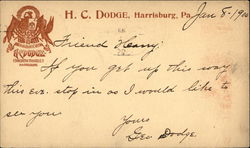 H. C. DODGE, Harrisburg, Pa. Jan 8-190
Friend Harry.
If you get up this way
this eve. stop in as I would like to
see you
Yours
Geo Dodge.